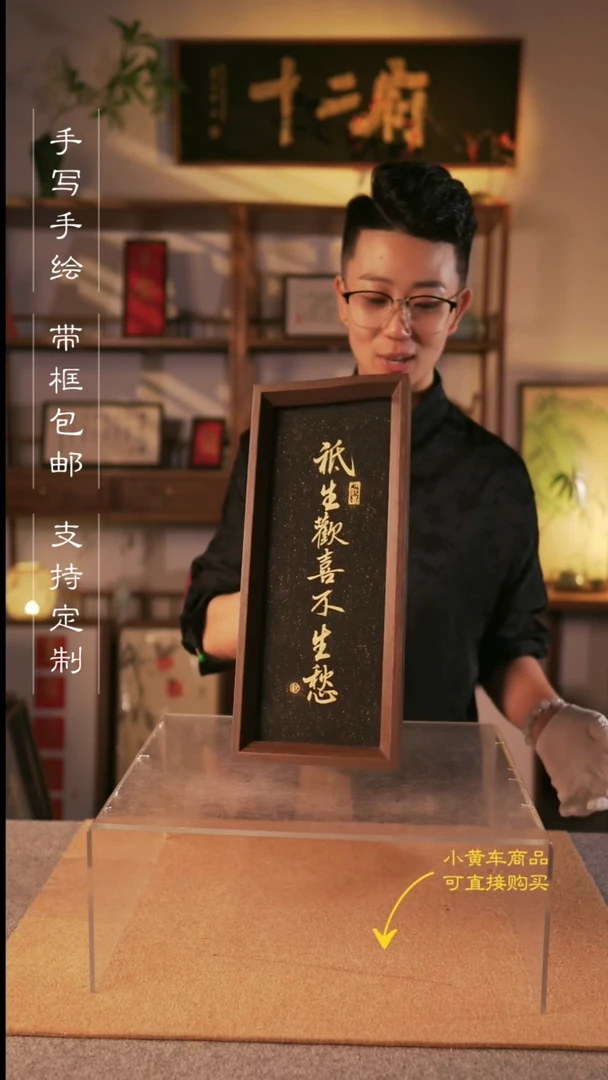 十二府
手写手绘
带框包邮
支持定制
祗生歡喜不生愁
小黄车商品
可直接购买